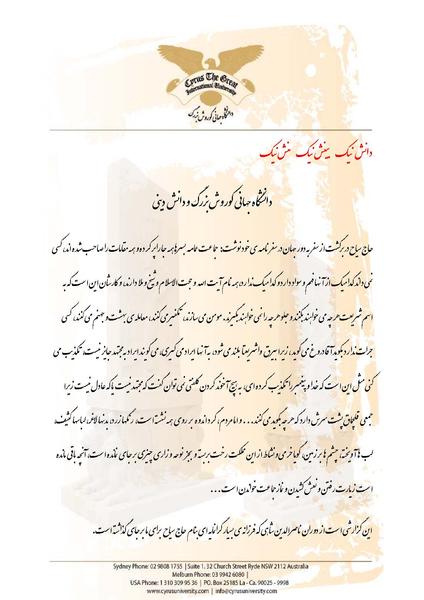 Cyrus The Great
International University
دانشگاه جهانی کوروش بزرگ
دانش نیک بینش نیک منش نیک
دانشگاه جهانی کوروش بزرگ و دانش دینی
حاج سیاح در برگشت از سفر به دور جهان در سفرنامه ی خود نوشت: جماعت عمامه بسر همه جا را پر کرده و همه مقامات را صاحب شده اند، کسی
نمی داند کدامیک از آنها فهم و سواد دارد و کدامیک ندارد، همه نام آیت الله و حجت الاسلام و شیخ و ملا دارند، و کارشان این است که به
اسم شریعت هر چه می خواهند بکنند و جلو هر چه را نمی خواهند بگیرند. مومن می سازند، تکفیر می کنند، معامله ی بهشت و جهنم می کنند، کسی
جرات ندارد بگوید آقا دروغ می گوید، زیرا بیرق واشریعتا بلند می شود. به آنها ایراد می گیری، می گویند ایراد به مجتهد جایز نیست، تکذیب می
کنی مثل این است که خدا و پیغمبر را تکذیب کرده ای، به هیچ آخوند گردن کلفتی نمی توان گفت که مجتهد نیست یا که عادل نیست زیرا
جمعی قلچماق پشت سرش دارد که هر چه بگوید می کنند... و اما مردم، گرد اندوه بر روی همه نشسته است، رنگها زرد، بدنها لاغر، لباسها کثیف،
لب ها آویخته، چشم ها بر زمین، گویا خرمی و نشاط از این مملکت رخت بربسته و بجز نوحه و زاری چیزی بر جای نمانده است، آنچه باقی مانده
است زیارت رفتن و نعش کشیدن و نماز جماعت خواندن است...
این گزارشی است از دوران ناصرالدین شاهی که فرزانه ی بسیار گرانمایه ای بنام حاج سیاح برای ما بر جای گذاشته است.
Sydney Phone: 02 9808 1735 | Suite 1, 32 Church Street Ryde NSW 2112 Australia
Melburn Phone: 03 9942 6080 |
USA Phone: 1 310 309 95 36 | P.O. Box 25185 La - Ca. 90025 - 9998
www.cyrusuniversity.com | info@cyrusuniversity.com